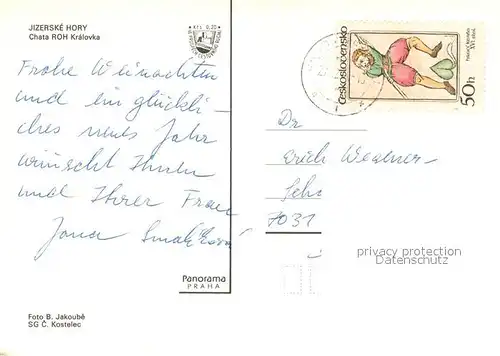 JIZERSKÉ HORY
Chata ROH Královka
Kčs 0,20
Frohe Weinachten
und ein glückli-
ches neues Jahr
wünscht Ihnen
und Ihrer Frau
Jana
Panorama
PRAHA
Foto B. Jakoubě
SG Č. Kostelec
Československo
50h
Dr
Erich
7031
privacy protection
Datenschutz